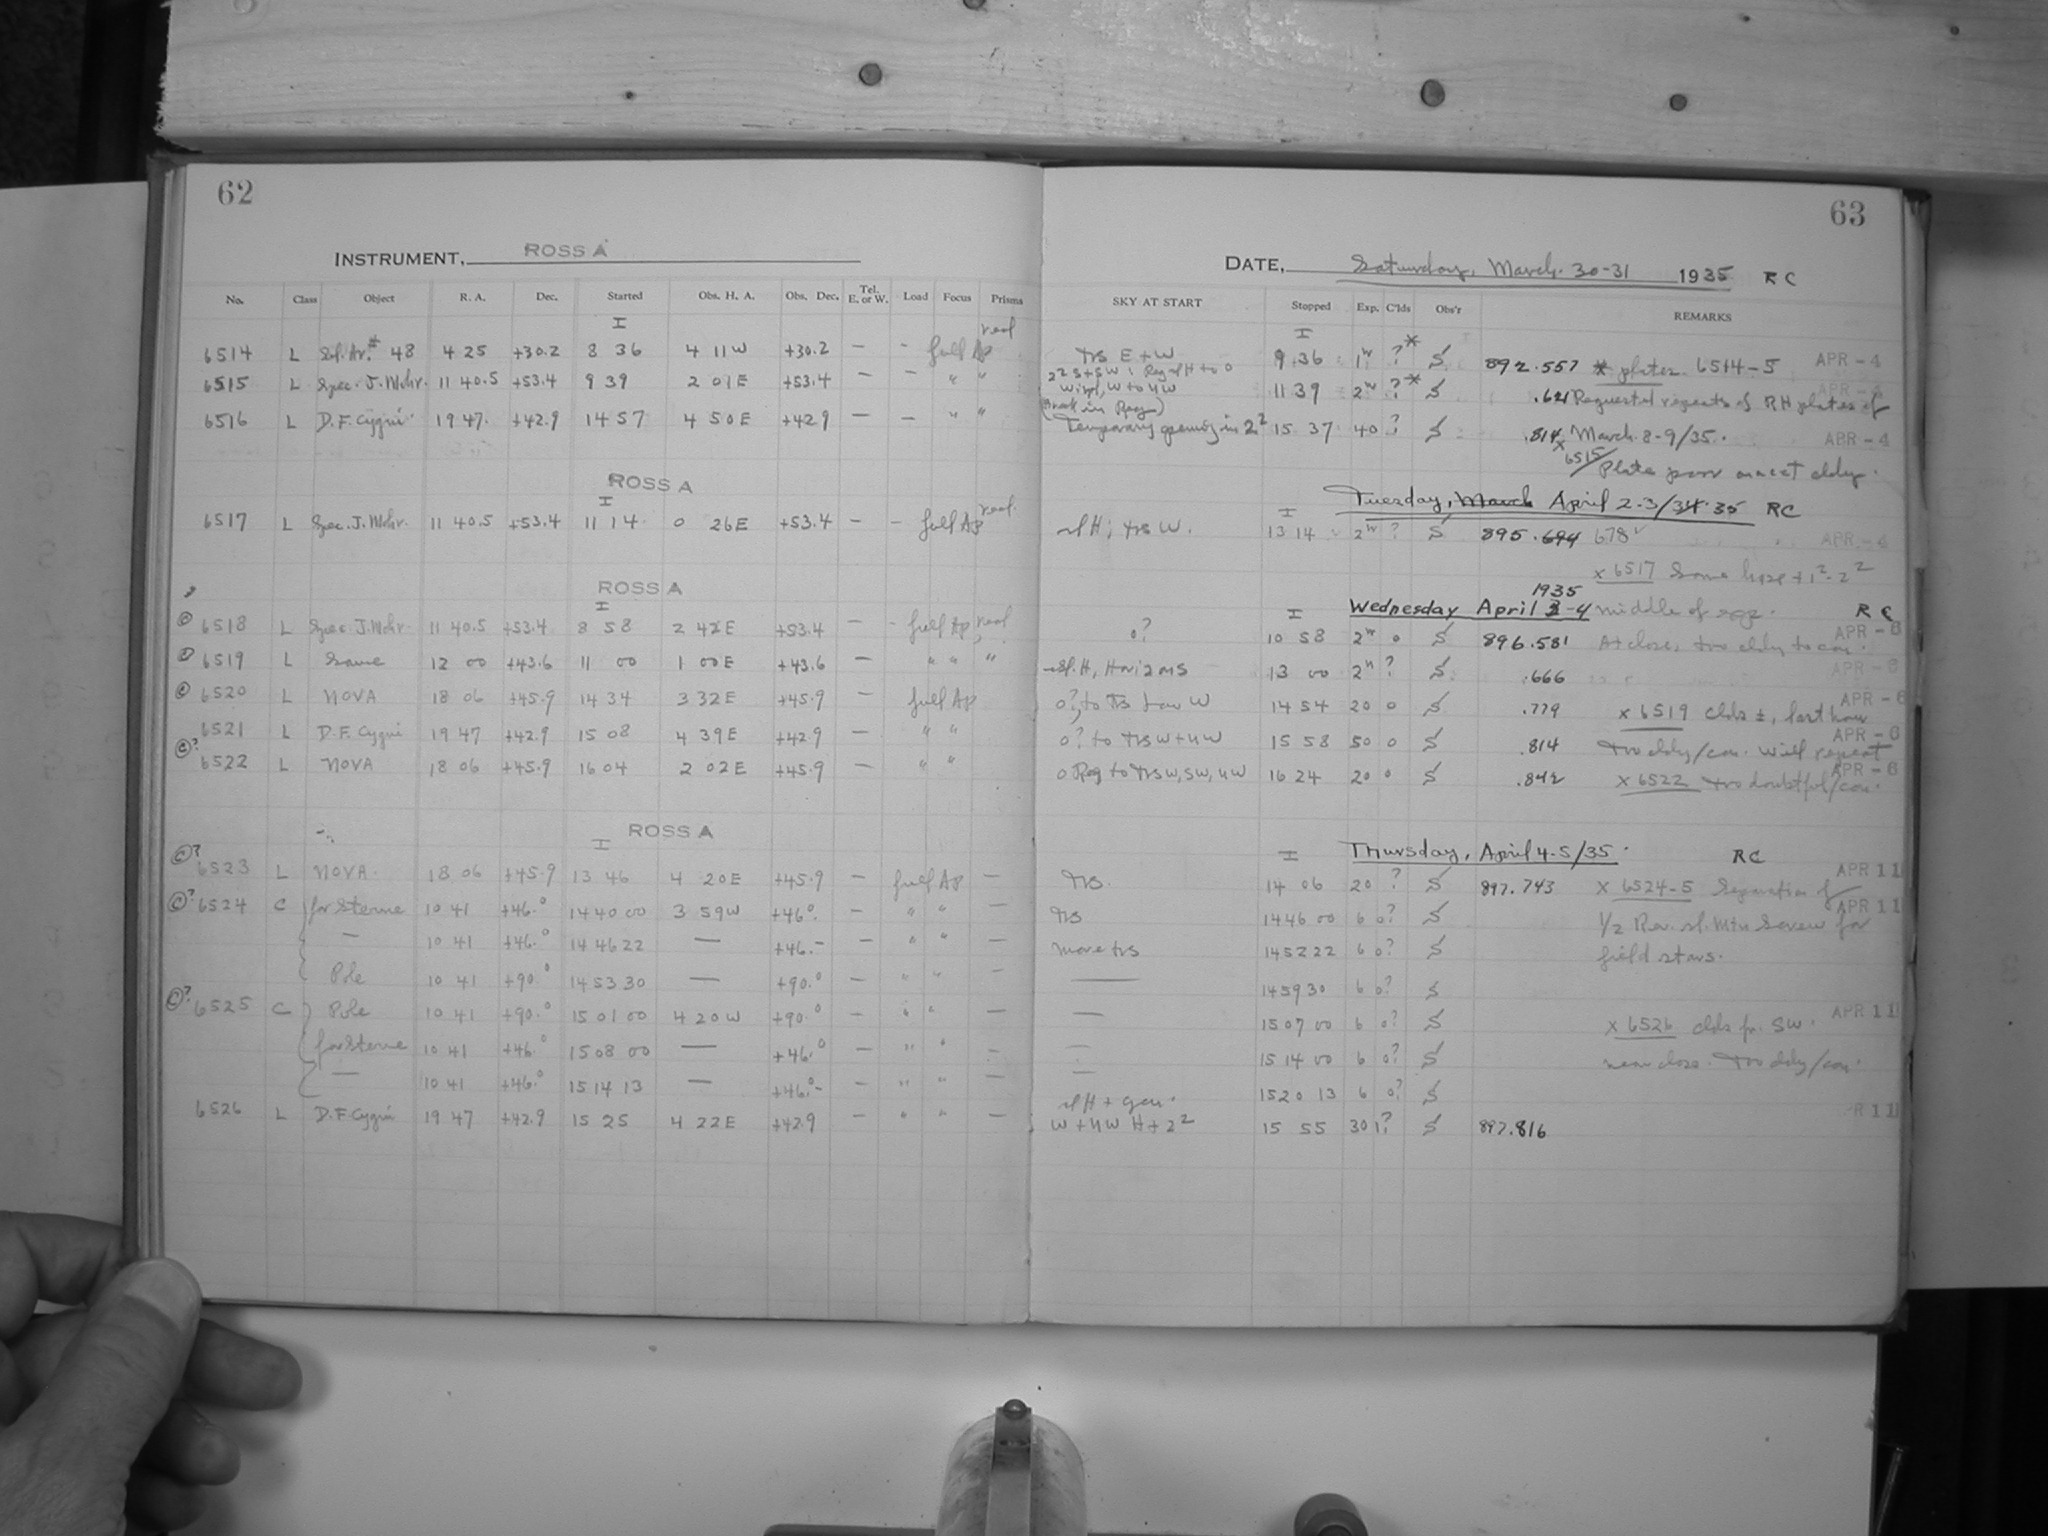 62
INSTRUMENT, ROSS A
No. Class Object R. A. Dec. Started Obs. H. A. Obs. Dec. Tel. E. or W. Load Focus Prisms
I
6514 L Sel. Ar. # 48 4 25 +30.2 8 36 4 11 W +30.2 — - full Ap
6515 L Spec. J. Mohr. 11 40.5 +53.4 9 39 2 01 E +53.4 — " "
6516 L D.F. Cygni 19 47. +42.9 14 57 4 50 E +42.9 — — " "
ROSS A
I
6517 L Spec. J. Mohr. 11 40.5 +53.4 11 14 0 26 E +53.4 — - full Ap
ROSS A
I
6518 L Spec. J. Mohr. 11 40.5 +53.4 8 58 2 42 E +53.4 — - full Ap,
6519 L Same 12 00 +43.6 11 00 1 00 E +43.6 — " " "
6520 L NOVA 18 06 +45.9 14 34 3 32 E +45.9 — full Ap
6521 L D.F. Cygni 19 47 +42.9 15 08 4 39 E +42.9 — " "
©? 6522 L NOVA 18 06 +45.9 16 04 2 02 E +45.9 — " "
ROSS A
I
©? 6523 L NOVA. 18 06 +45.9 13 46 4 20 E +45.9 — full Ap —
©? 6524 C for Sterne 10 41 +46.° 14 40 00 3 59 W +46° — " " —
— 10 41 +46.° 14 46 22 — +46.- — " " —
Pole 10 41 +90.° 14 53 30 — +90.° — " " —
©? 6525 C Pole 10 41 +90.° 15 01 00 4 20 W +90.° — " " —
for Sterne 10 41 +46.° 15 08 00 — +46.° — " " —
— 10 41 +46.° 15 14 13 — +46.°- — " " —
6526 L D.F. Cygni 19 47 +42.9 15 25 4 22 E +42.9 — " " —
63
DATE, Saturday, March. 30-31 1935 R C
SKY AT START Stopped Exp. C'lds Obs'r REMARKS
I
trs E + W 9 36 1ʰ ?* S 892.557 * plates 6514-5 APR - 4
11 39 2ʰ ?* S .621 Requested repeats of RH plates of
(Break in Reg)
Temporary opening in 2² 15 37 40 ? S .814 March 8-9/35. APR - 4
x 6515/ Plate poor acct cldy.
Tuesday, March April 2-3/34.35 RC
I
sl H; trs W. 13 14 2ʰ ? S 895.694 678 APR - 4
x 6517 Some haze + 1²-2²
1935
I Wednesday April 3-4 middle of exp. R C
o? 10 58 2ʰ 0 S 896.581 At close, too cldy to con. APR - 6
sl. H, Horizons 13 00 2ʰ ? S .666 APR - 6
o?, to trs low W 14 54 20 0 S .779 x 6519 Clds ±, last hour APR - 6
o? to trs W + NW 15 58 50 0 S .814 too cldy/con. Will repeat APR - 6
o Reg to trs W, SW, NW 16 24 20 0 S .842 x 6522 too doubtful/con. APR - 6
I Thursday, April 4-5/35. RC
trs. 14 06 20 ? S 897.743 x 6524-5 Separation of APR 11
trs 14 46 00 6 0? S 1/2 Rev. sl. Mtn Screw for APR 11
more trs 14 52 22 6 0? S field stars.
— 14 59 30 6 0? S
— 15 07 00 6 0? S x 6526 Clds fr. SW. APR 11
— 15 14 00 6 0? S near close. Too cldy/con.
— 15 20 13 6 0? S
sl H + gen.
W + NW H + 2² 15 55 30 1? S 897.816 APR 11